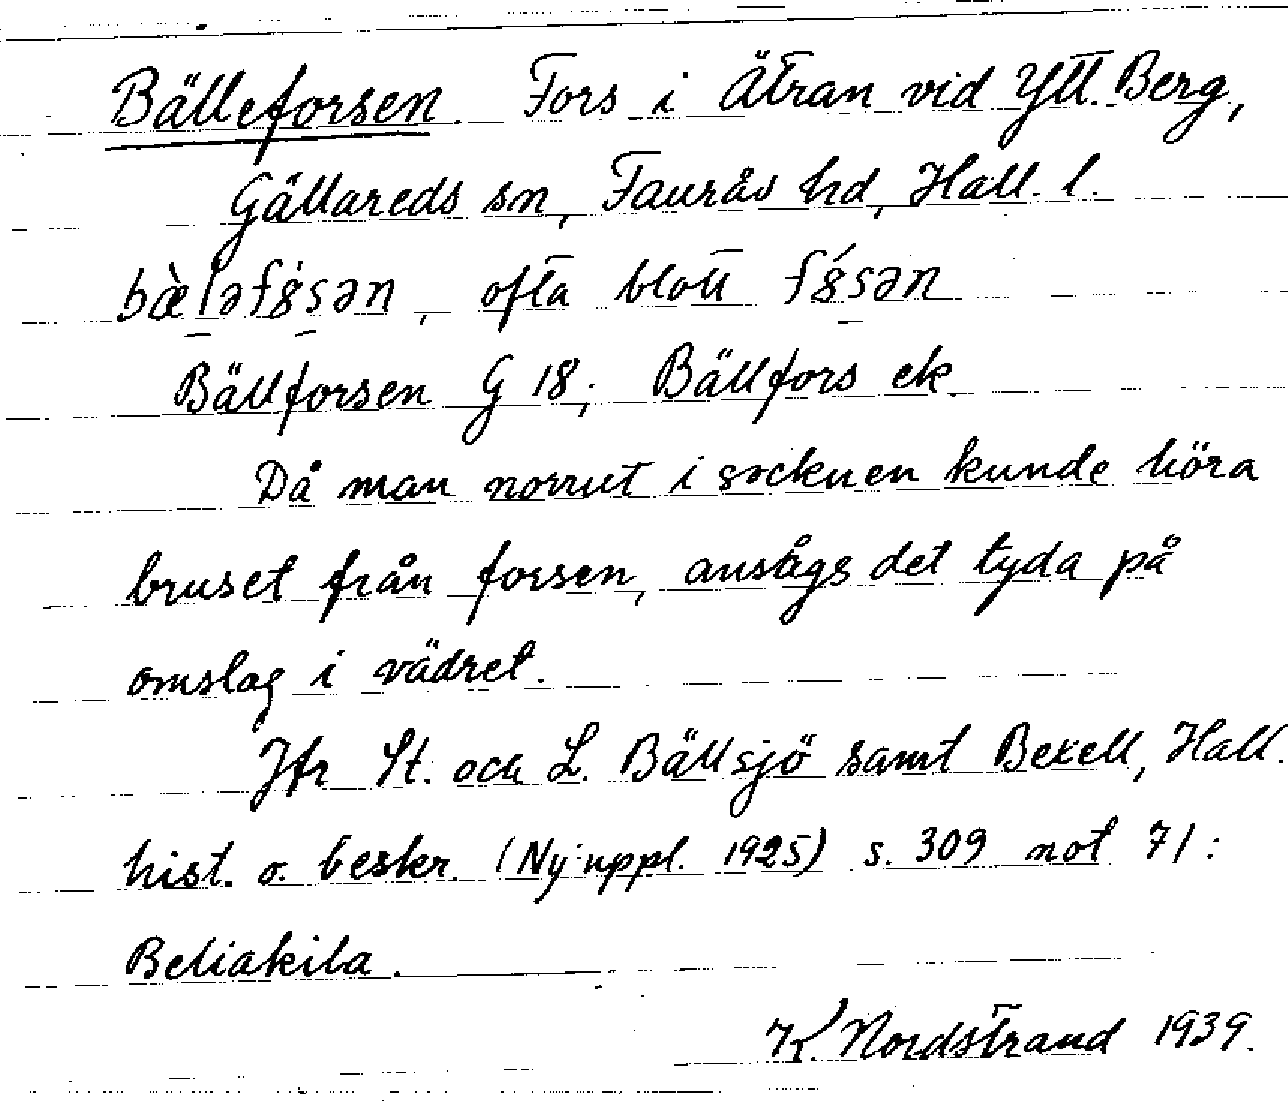 Bälleforsen. Fors i Ätran vid Ytt. Berg,
Gällareds sn, Faurås hd, Hall. l.
bæ̀ləfȣ́sən, ofta blott fȣ́sən
Bällforsen G 18; Bällfors ek.
Då man norrut i socknen kunde höra
bruset från forsen, ansågs det tyda på
omslag i vädret.
Jfr St. och L. Bällsjö samt Bexell, Hall.
hist. o. beskr. (Ny uppl. 1925) s. 309 not 71:
Beliakila.
K. Nordstrand 1939.